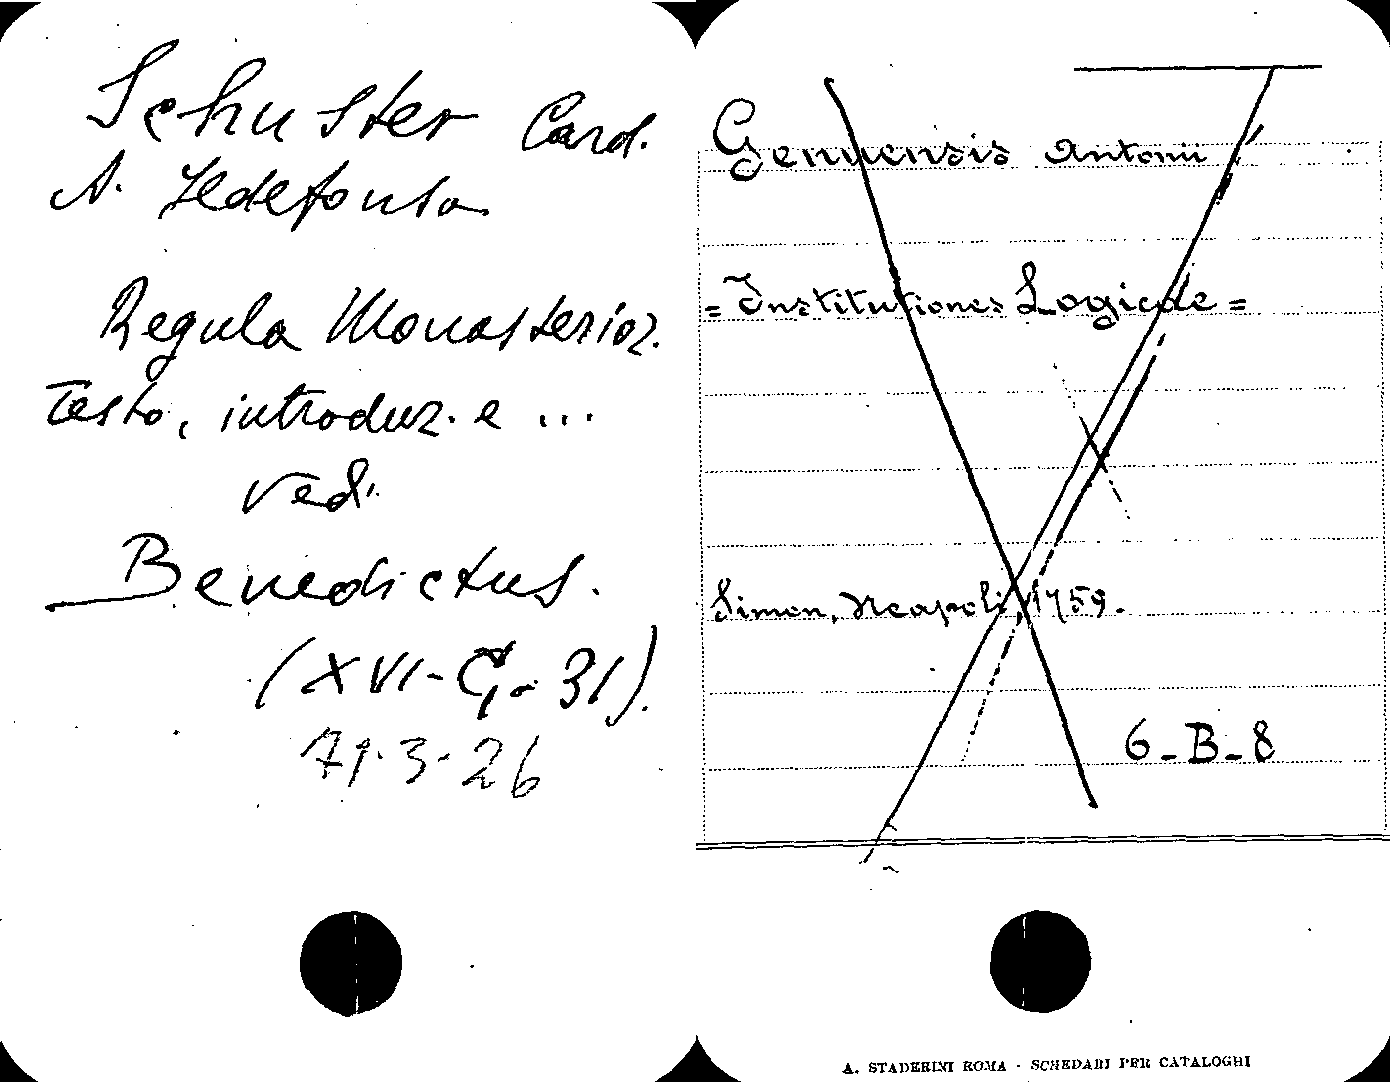 Schuster Card.
A. Ildefonso
Regula Monasterior.
Testo, introduz. e ...
vedi
Benedictus.
(XVI-G.-31).
71-3-26
Genuensis Antonii
= Institutiones Logicae =
Simon, Neapoli 1759.
6-B-8
A. STADERINI ROMA - SCHEDARI PER CATALOGHI